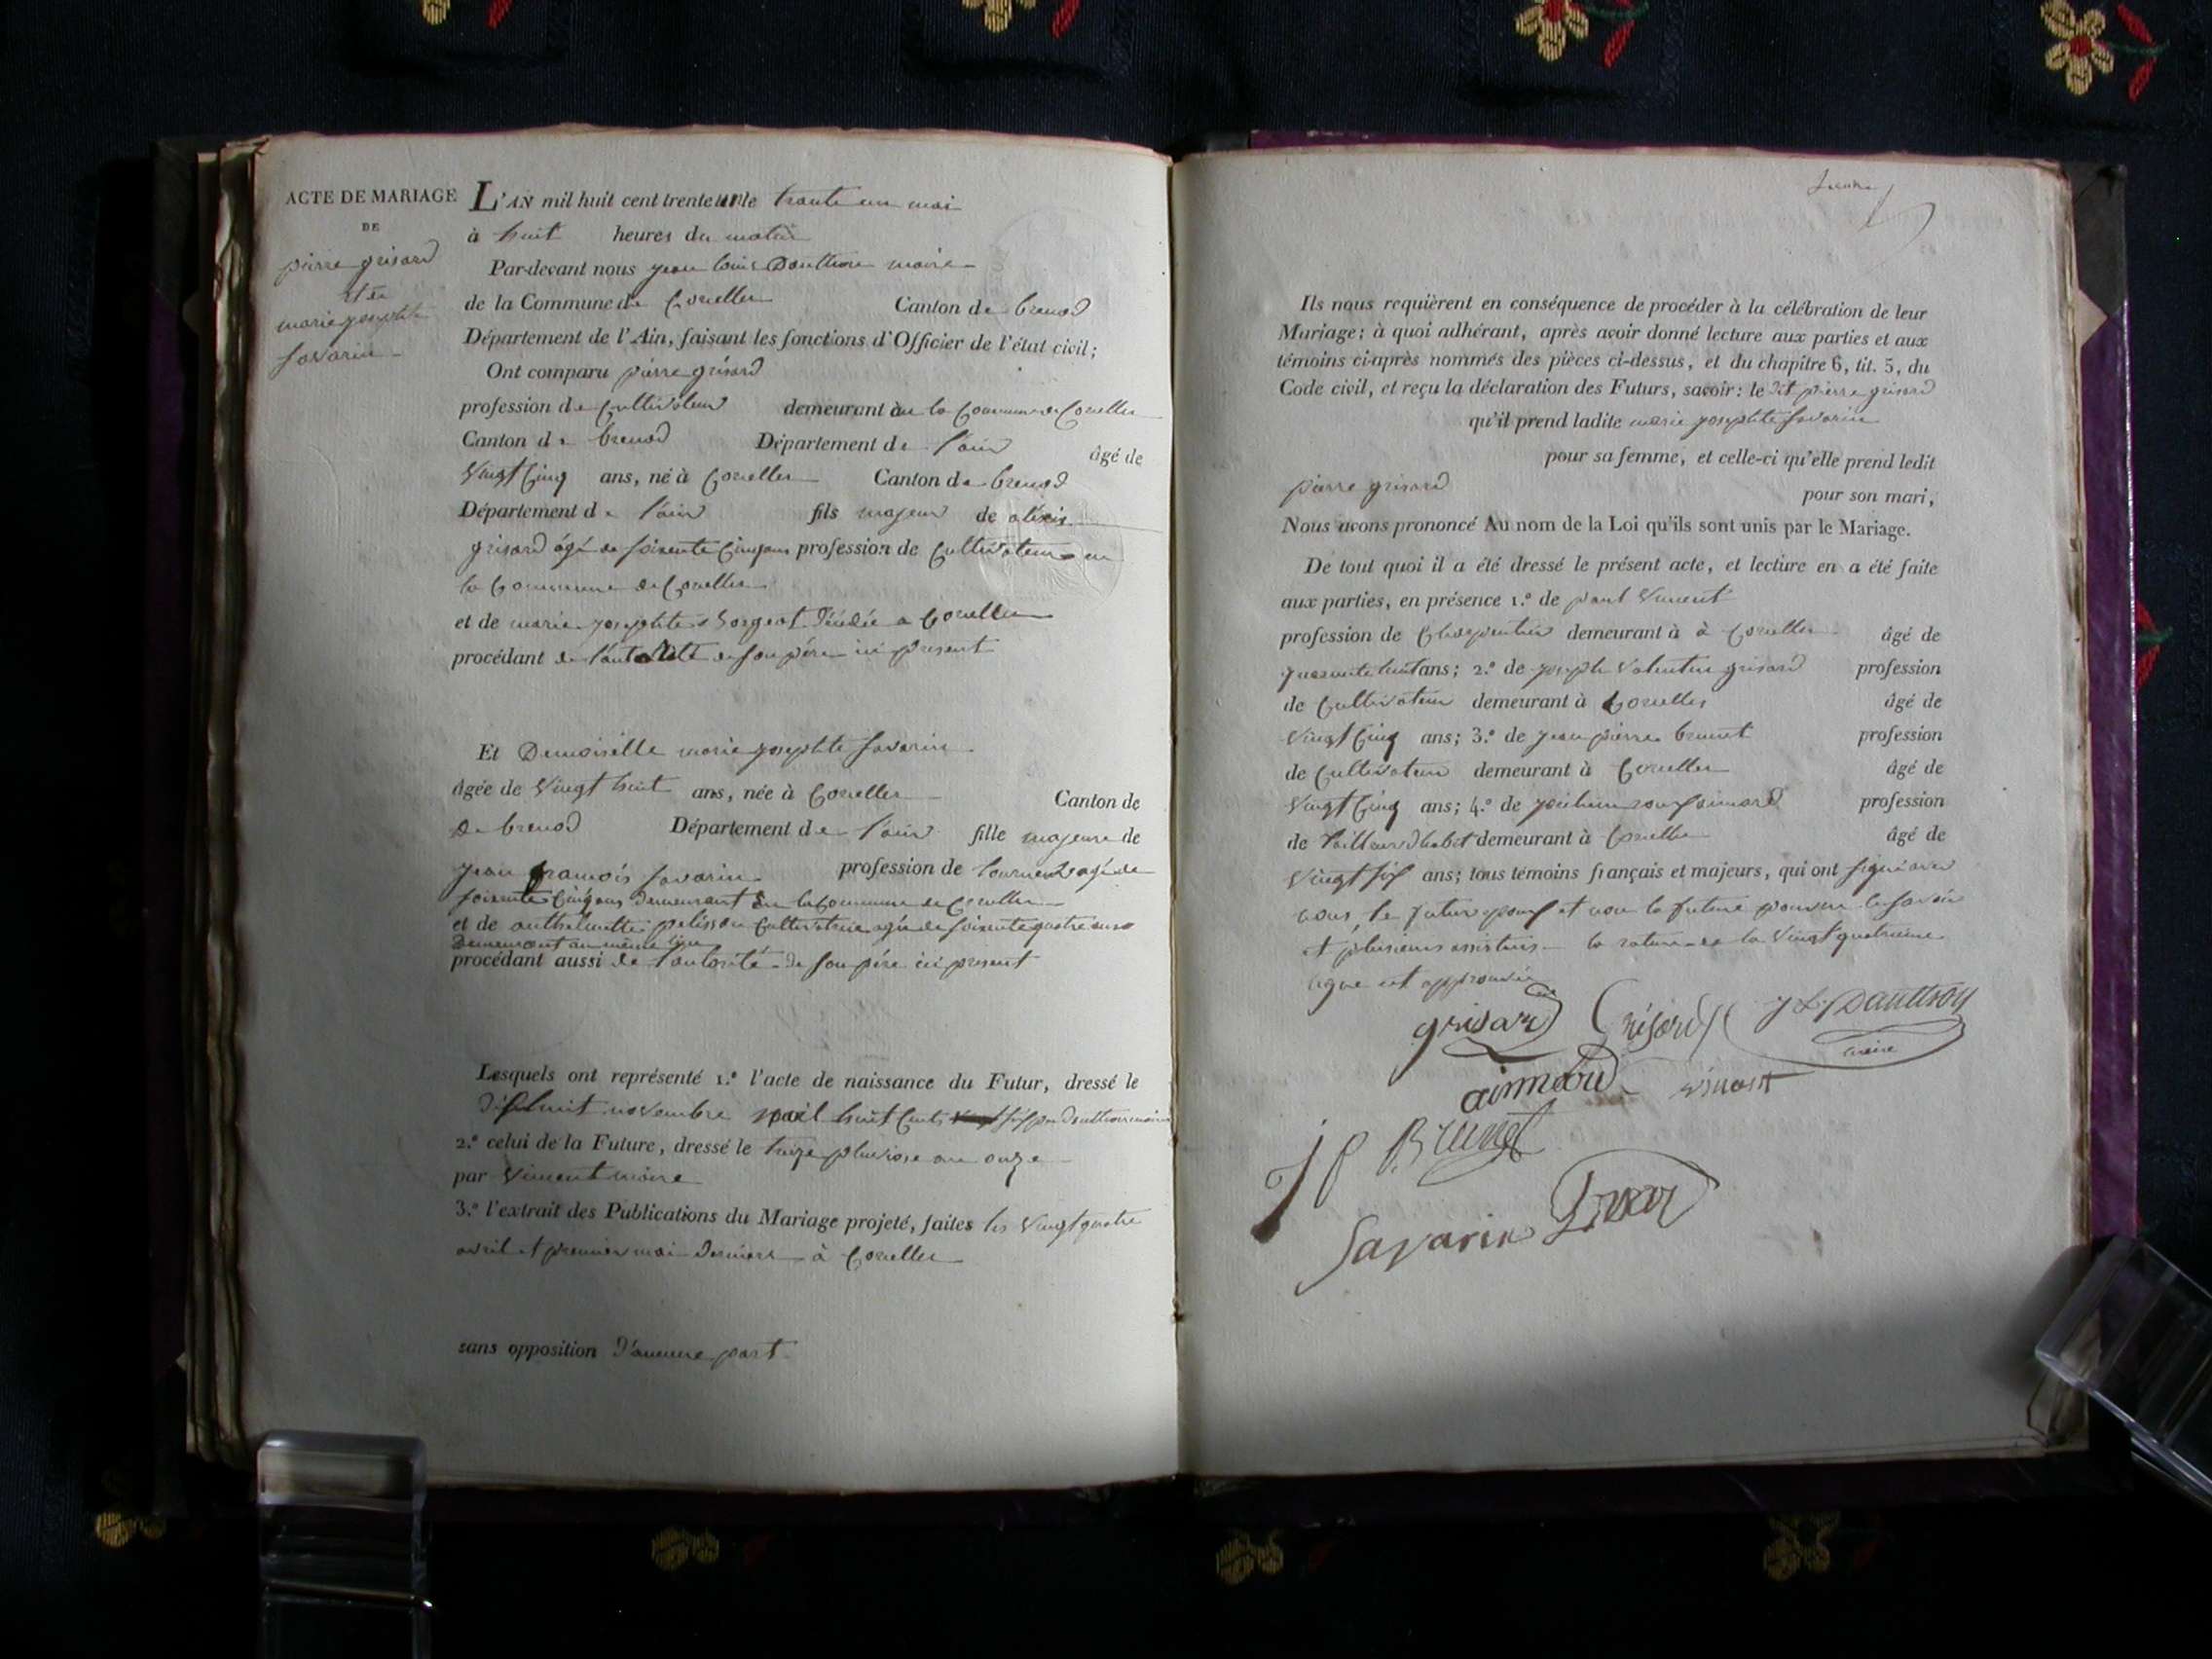 ACTE DE MARIAGE
DE
pierre grisard
et de
marie josephte
savarin
L'AN mil huit cent trente un le trante un mai
à huit heures du matin
Par-devant nous jean louis Dauthion maire
de la Commune de Corcelles Canton de brenod
Département de l'Ain, faisant les fonctions d'Officier de l'état civil;
Ont comparu pierre grisard
profession de Cultivateur demeurant en la Commune de Corcelles
Canton de brenod Département de l'ain âgé de
Vingt Cinq ans, né à Corcelles Canton de brenod
Département de l'ain fils majeur de aléxis
grisard âgé de soixente Cinq ans profession de Cultivateur en
la Commune de Corcelles
et de marie josephte Borgeot décédée a Corcelles
procédant de l'autorité de son père ici présent
Et Demoiselle marie josephte savarin
âgée de Vingt huit ans, née à Corcelles Canton de
de brenod Département de l'ain fille majeure de
jean françois savarin profession de tourneur agé de
soixente Cinq ans demeurant en la Commune de Corcelles
et de anthelmette pelisson Cultivatrice agée de soixente quatre ans
Demeurant au même lieu
procédant aussi de l'autorité de son père ici présent
Lesquels ont représenté 1.º l'acte de naissance du Futur, dressé le
dix huit novembre mil huit Cent six par Dauthion maire
2.º celui de la Future, dressé le treize pluviose an onze
par Vincent maire
3.º l'extrait des Publications du Mariage projeté, faites les Vingt quatre
avril et premier mai derniers à Corcelles
sans opposition d'aucune part
Ils nous requièrent en conséquence de procéder à la célébration de leur
Mariage; à quoi adhérant, après avoir donné lecture aux parties et aux
témoins ci-après nommés des pièces ci-dessus, et du chapitre 6, tit. 5, du
Code civil, et reçu la déclaration des Futurs, savoir: le dit pierre grisard
qu'il prend ladite marie josephte savarin
pour sa femme, et celle-ci qu'elle prend ledit
pierre grisard pour son mari,
Nous avons prononcé Au nom de la Loi qu'ils sont unis par le Mariage.
De tout quoi il a été dressé le présent acte, et lecture en a été faite
aux parties, en présence 1.º de paul Vincent
profession de Charpentier demeurant à à Corcelles âgé de
quarante huit ans; 2.º de joseph Valentin grisard profession
de Cultivateur demeurant à Corcelles âgé de
Vingt Cinq ans; 3.º de jean pierre brunet profession
de Cultivateur demeurant à Corcelles âgé de
Vingt Cinq ans; 4.º de profession
de tailleur d'habit demeurant à Corcelles âgé de
Vingt six ans; tous témoins français et majeurs, qui ont signé avec
nous, le futur époux et non la future pour ne le savoir
et plusieurs assistans la rature de la Vingt quatrième
ligne est approuvée
grisard Grisard J L Dauthion
maire
aimard vincent
J P Brunet
Savarin